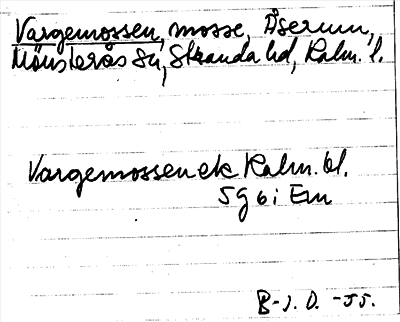 Vargemossen, mosse, Åserum,
Mönsterås sn, Stranda hd, Kalm. l.
Vargemossen ek Kalm. bl.
5g 6i Em
B-J. D. -55.